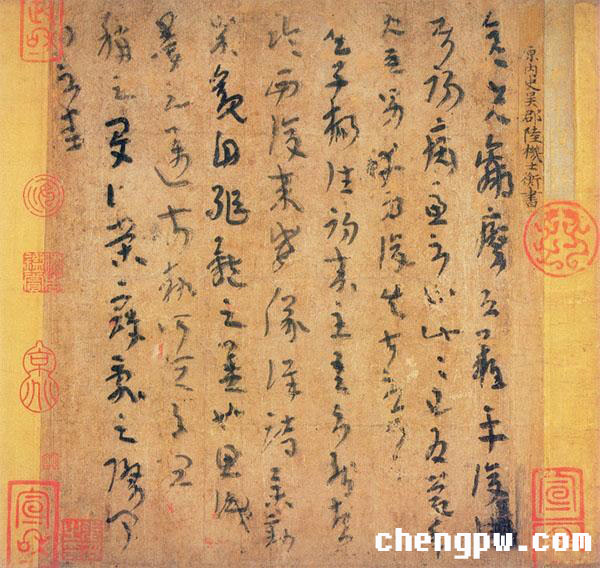 原内史吳郡陸機士衡書
彦先羸瘵恐難平復往屬
初病慮不止此此已為慶承
使唯男幸為復失前憂耳
吳子楊往初來主吾不能盡
臨西復來威儀詳跱舉動
成觀自軀體之美也思識
量之邁前勢所恒有宜
稱之夏伯榮寇亂之際聞
問不悉
chengpw.com